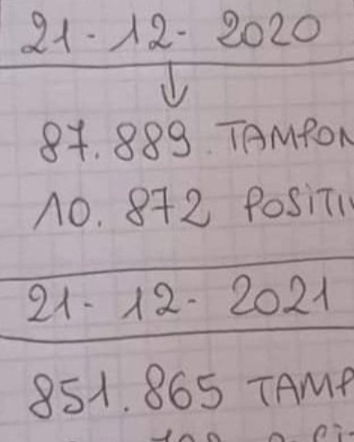 21-12-2020
↓
87.889 TAMPON
10.872 POSITIV
21-12-2021
851.865 TAMP